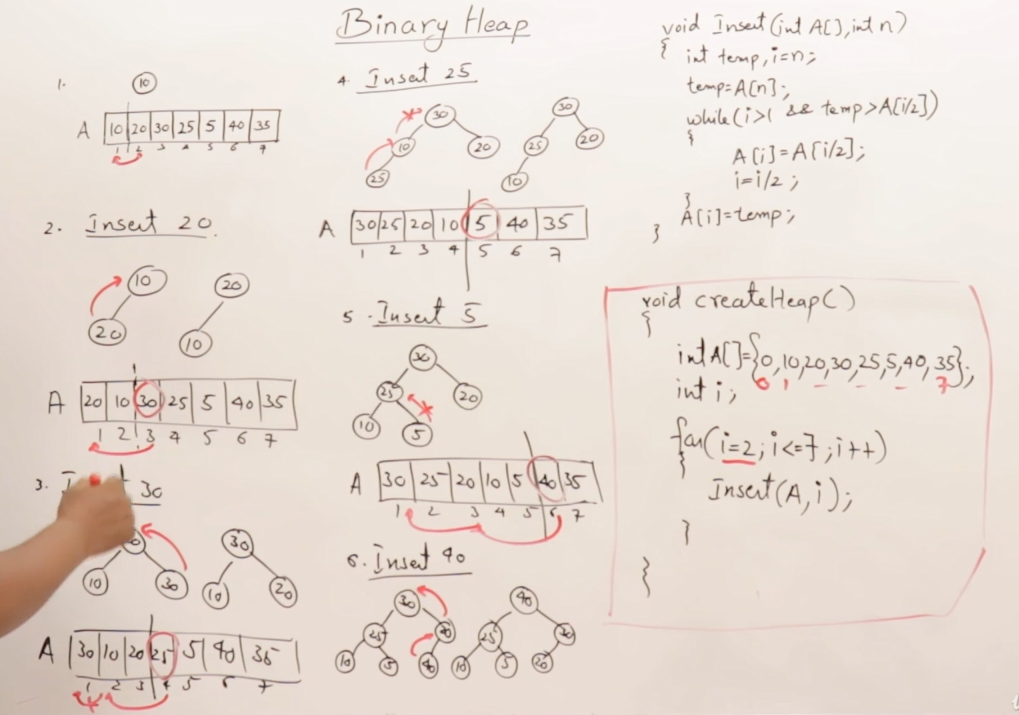 Binary Heap
1.
10
A 10 20 30 25 5 40 35
1 2 3 4 5 6 7
2. Insert 20.
10 20
20 10
A 20 10 30 25 5 40 35
1 2 3 4 5 6 7
3. 30
10 30
30
10 20
A 30 10 20 25 5 40 35
1 2 3 4 5 6 7
4. Insert 25
30 30
10 20 25 20
25 10
A 30 25 20 10 5 40 35
1 2 3 4 5 6 7
5. Insert 5
30
25 20
10 5
A 30 25 20 10 5 40 35
1 2 3 4 5 6 7
6. Insert 40
30 40
25 25
10 5 40 10 5 20
void Insert(int A[],int n)
{
int temp,i=n;
temp=A[n];
while(i>1 && temp>A[i/2])
{
A[i]=A[i/2];
i=i/2;
}
A[i]=temp;
}
void createHeap()
{
int A[]={0,10,20,30,25,5,40,35};
0 1 - - - - 7
int i;
for(i=2;i<=7;i++)
{
Insert(A,i);
}
}